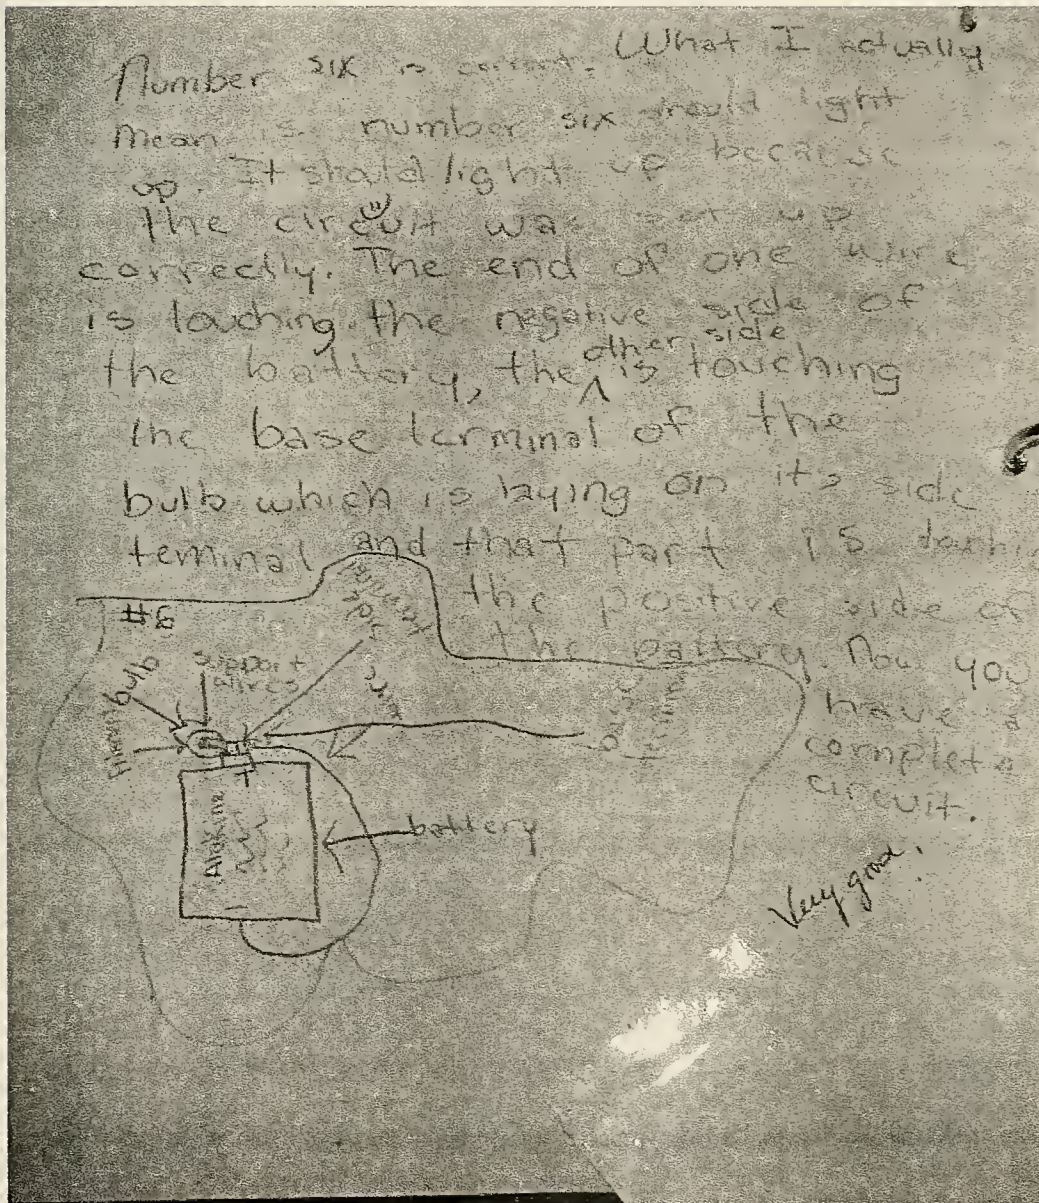 Number six is correct. What I actually
mean is number six should light
up. It should light up because
the circuit was set up
correctly. The end of one wire
is touching the negative side of
the battery, the other side is touching
the base terminal of the
bulb which is laying on its side
teminal and that part is
the positive side of
the battery. Now you
have a
complete
circuit.
#6
bulb
support
wires
side
terminal
wire
base
terminal
filament
+
Alakline
battery
-
Very good!